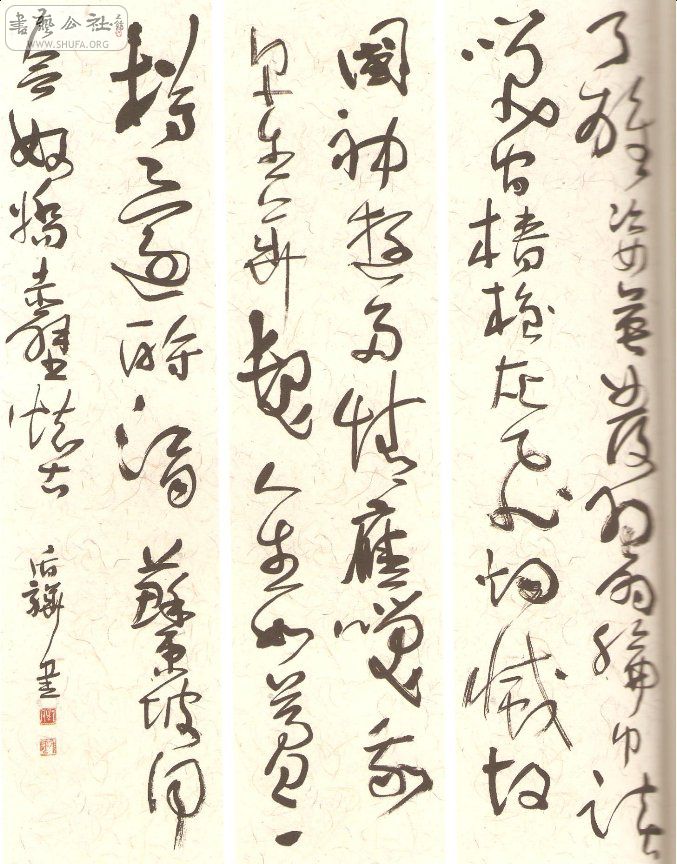 書藝公社
WWW.SHUFA.ORG
了雄姿英發羽扇綸巾談
笑間檣櫓灰飛烟滅故
國神遊多情應笑我
早生華髮人生如夢一
樽還酹江月 蘇東坡詞
念奴嬌赤壁懷古
書